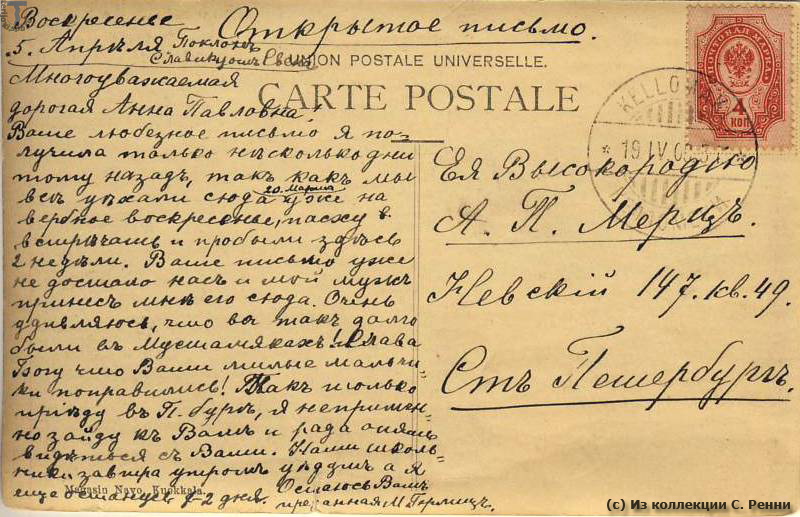 Воскресенье
5. Апрѣля Поклонъ
Открытое письмо.
UNION POSTALE UNIVERSELLE.
CARTE POSTALE
4 КОП
KELLOMÄKI
19 IV 03
Многоуважаемая
дорогая Анна Павловна!
Ваше любезное письмо я по-
лучила только нѣсколько дни
тому назадъ, такъ какъ мы
всѣ уѣхали сюда уже на
20. Марта
вербное воскресенье, пасху
встрѣчать и пробыли здѣсь
2 недѣли. Ваше письмо уже
не достало насъ и мой мужъ
принесъ мнѣ его сюда. Очень
удивляюсь, что вы такъ долго
были въ Мустамякахъ! Слава
Богу что Ваши милые мальчи-
ки поправились! Какъ только
пріѣду въ П.бургъ, я непримѣн-
но зайду къ Вамъ и рада опять
видѣться съ Вами. Наши школь-
ники завтра утромъ уѣдутъ а я
еще останусь 1-2 дня. Остаюсь Вамъ
преданная М. Герлицъ.
Magasin Novo, Kuokkala.
Ея Высокородію
А. П. Мерцъ.
Невскій 147. кв. 49.
Ст. Петербургъ.
(c) Из коллекции С. Ренни